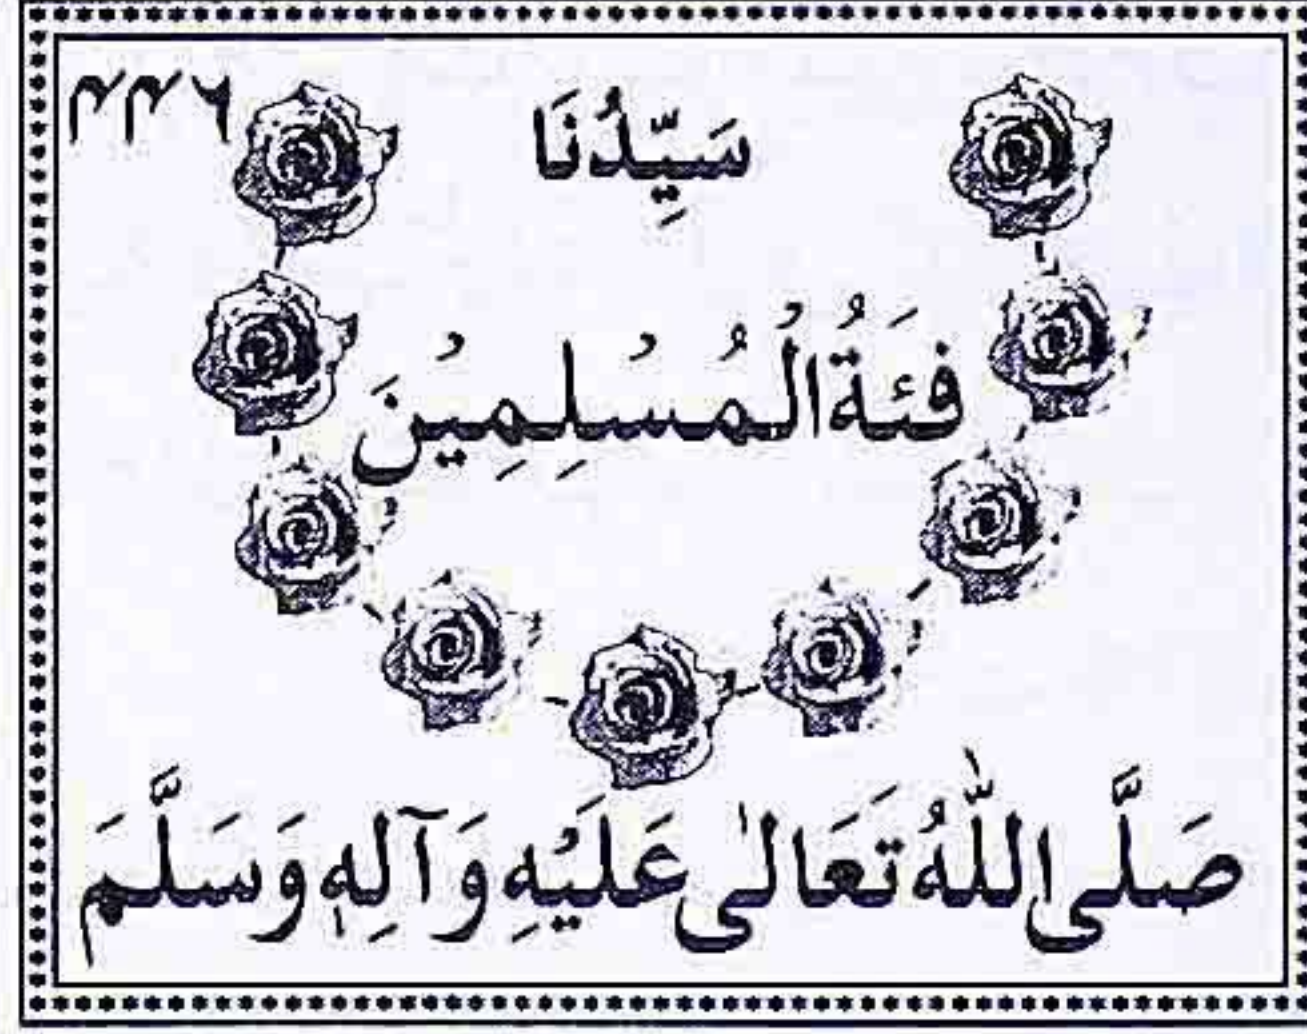 ۴۴۶
سَيِّدُنَا
فئَةُ الْمُسْلِمِيْنَ
صَلَّى اللّٰهُ تَعَالٰى عَلَيْهِ وَآلِهٖ وَسَلَّمَ